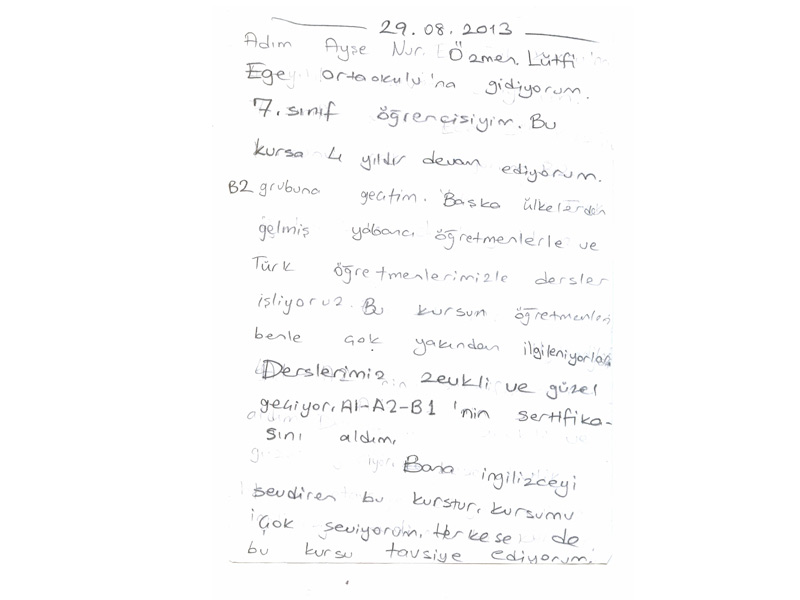 29.08.2013
Adım Ayşe Nur Özmen. Lütfi
Ege ortaokulu'na gidiyorum.
7. sınıf öğrencisiyim. Bu
kursa 4 yıldır devam ediyorum.
B2 grubuna geçtim. Başka ülkelerden
gelmiş yabancı öğretmenlerle ve
Türk öğretmenlerimizle dersler
işliyoruz. Bu kursun öğretmenleri
benle çok yakından ilgileniyorlar.
Derslerimiz zevkli ve güzel
geçiyor. A1-A2-B1 'nin sertfika-
sını aldım.
Bana ingilizceyi
sevdiren bu kurstur. kursumu
Çok seviyorum. Herkese de
bu kursu tavsiye ediyorum.